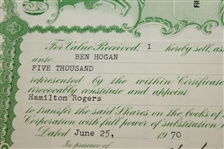 For Value Received, I hereby sell, as
unto BEN HOGAN
FIVE THOUSAND
represented by the within Certificate
irrevocably constitute and appoint
Hamilton Rogers
to transfer the said Shares on the books of
Corporation with full power of substitution
Dated June 25, 1970